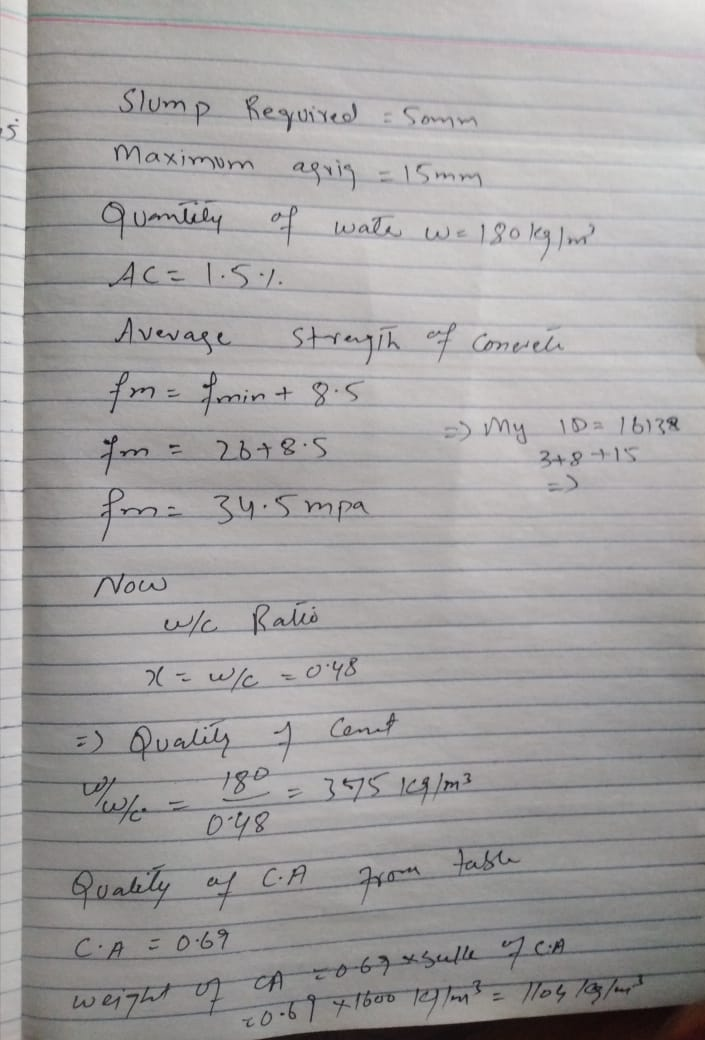 5
Slump Required = 50mm
Maximum agrig = 15mm
Quantily of wate w = 180 kg/m³
AC = 1.5 %.
Average Strength of Concrete
fm = fmin + 8.5
fm = 26+8.5
=) My ID = 16138
3+8+15
=)
fm = 34.5 mpa
Now
w/c Ratio
x = w/c = 0.48
=) Quality of Cemt
w/w/c = 180/0.48 = 375 kg/m³
Quality of C.A from table
C.A = 0.69
weight of CA = 0.69 x bulk of C.A
= 0.69 x 1600 kg/m³ = 1104 kg/m³